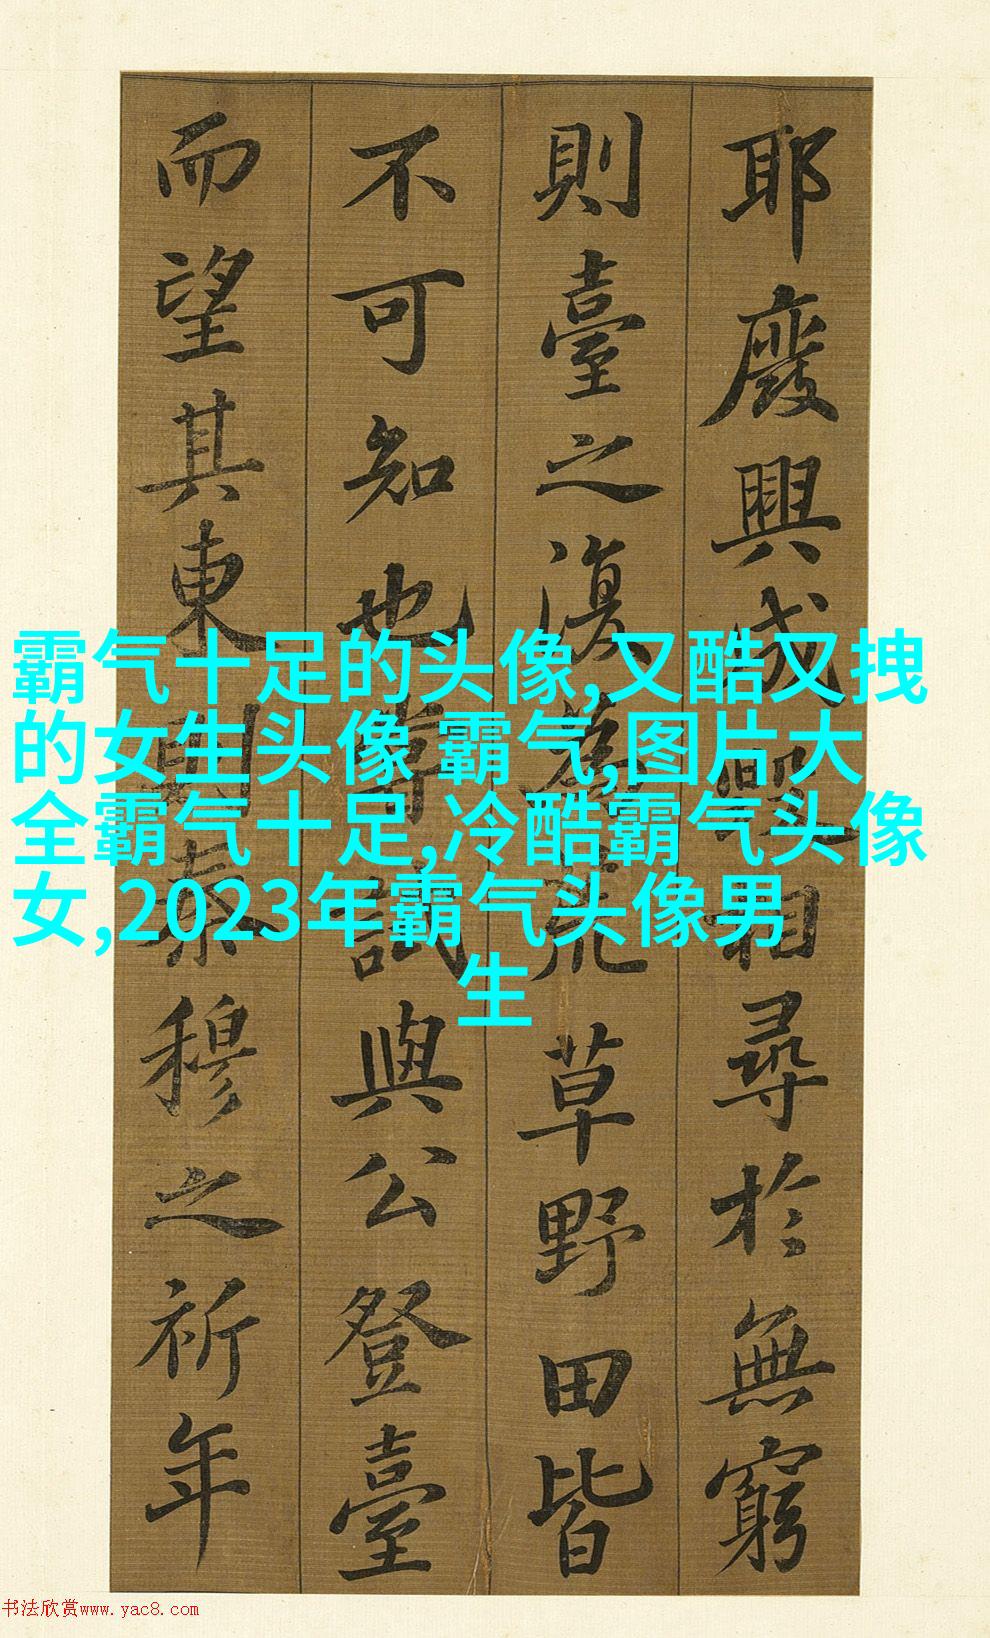 耶廢興成毀相尋於無窮
則臺之復為荒草野田皆
不可知也嘗試與公登臺
而望其東則秦穆之祈年
霸气十足的头像,又酷又拽
的女生头像 霸气,图片大
全霸气十足,冷酷霸气头像
女,2023年霸气头像男
生
书法欣赏www.yac8.com